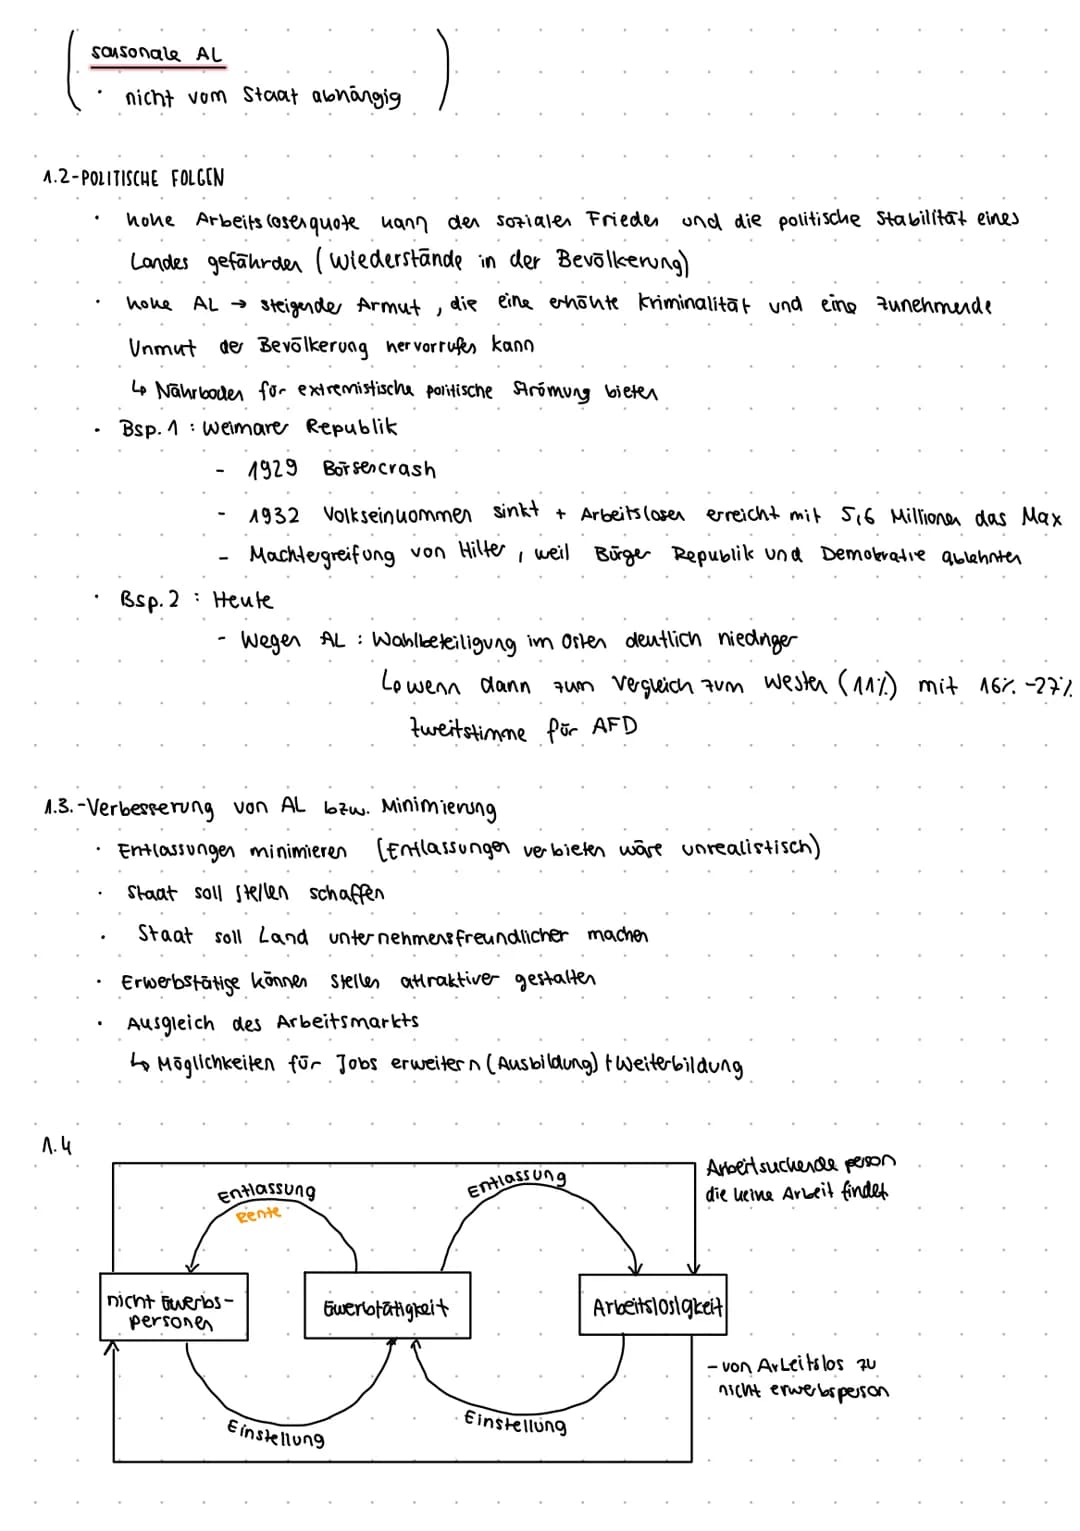 saisonale AL
• nicht vom Staat abhängig
1.2-POLITISCHE FOLGEN
• hohe Arbeitslosenquote kann den sozialen Frieden und die politische Stabilität eines
Landes gefährden (Wiederstände in der Bevölkerung)
• hohe AL → steigender Armut, die eine erhöhte Kriminalität und eine zunehmende
Unmut der Bevölkerung hervorrufen kann
↳ Nährboden für extremistische politische Strömung bieten
• Bsp. 1 : Weimarer Republik
- 1929 Börsencrash
- 1932 Volkseinkommen sinkt + Arbeitslosen erreicht mit 5,6 Millionen das Max
- Machtergreifung von Hilter, weil Bürger Republik und Demokratie ablehnten
• Bsp. 2 : Heute
- Wegen AL : Wahlbeteiligung im Osten deutlich niedriger
↳ wenn dann zum Vergleich zum Westen (11%) mit 16% -27%
Zweitstimme für AFD
1.3.-Verbesserung von AL bzw. Minimierung
• Entlassungen minimieren (Entlassungen verbieten wäre unrealistisch)
• Staat soll Stellen schaffen
• Staat soll Land unternehmensfreundlicher machen
• Erwerbstätige können Stellen attraktiver gestalten
• Ausgleich des Arbeitsmarkts
↳ Möglichkeiten für Jobs erweitern (Ausbildung) + Weiterbildung
1.4
Arbeitsuchende person
die keine Arbeit findet
Entlassung
Rente
Entlassung
nicht Erwerbs-
personen
Erwerbtätigkeit
Arbeitslosigkeit
- von Arbeitslos zu
nicht erwerbsperson
Einstellung
Einstellung